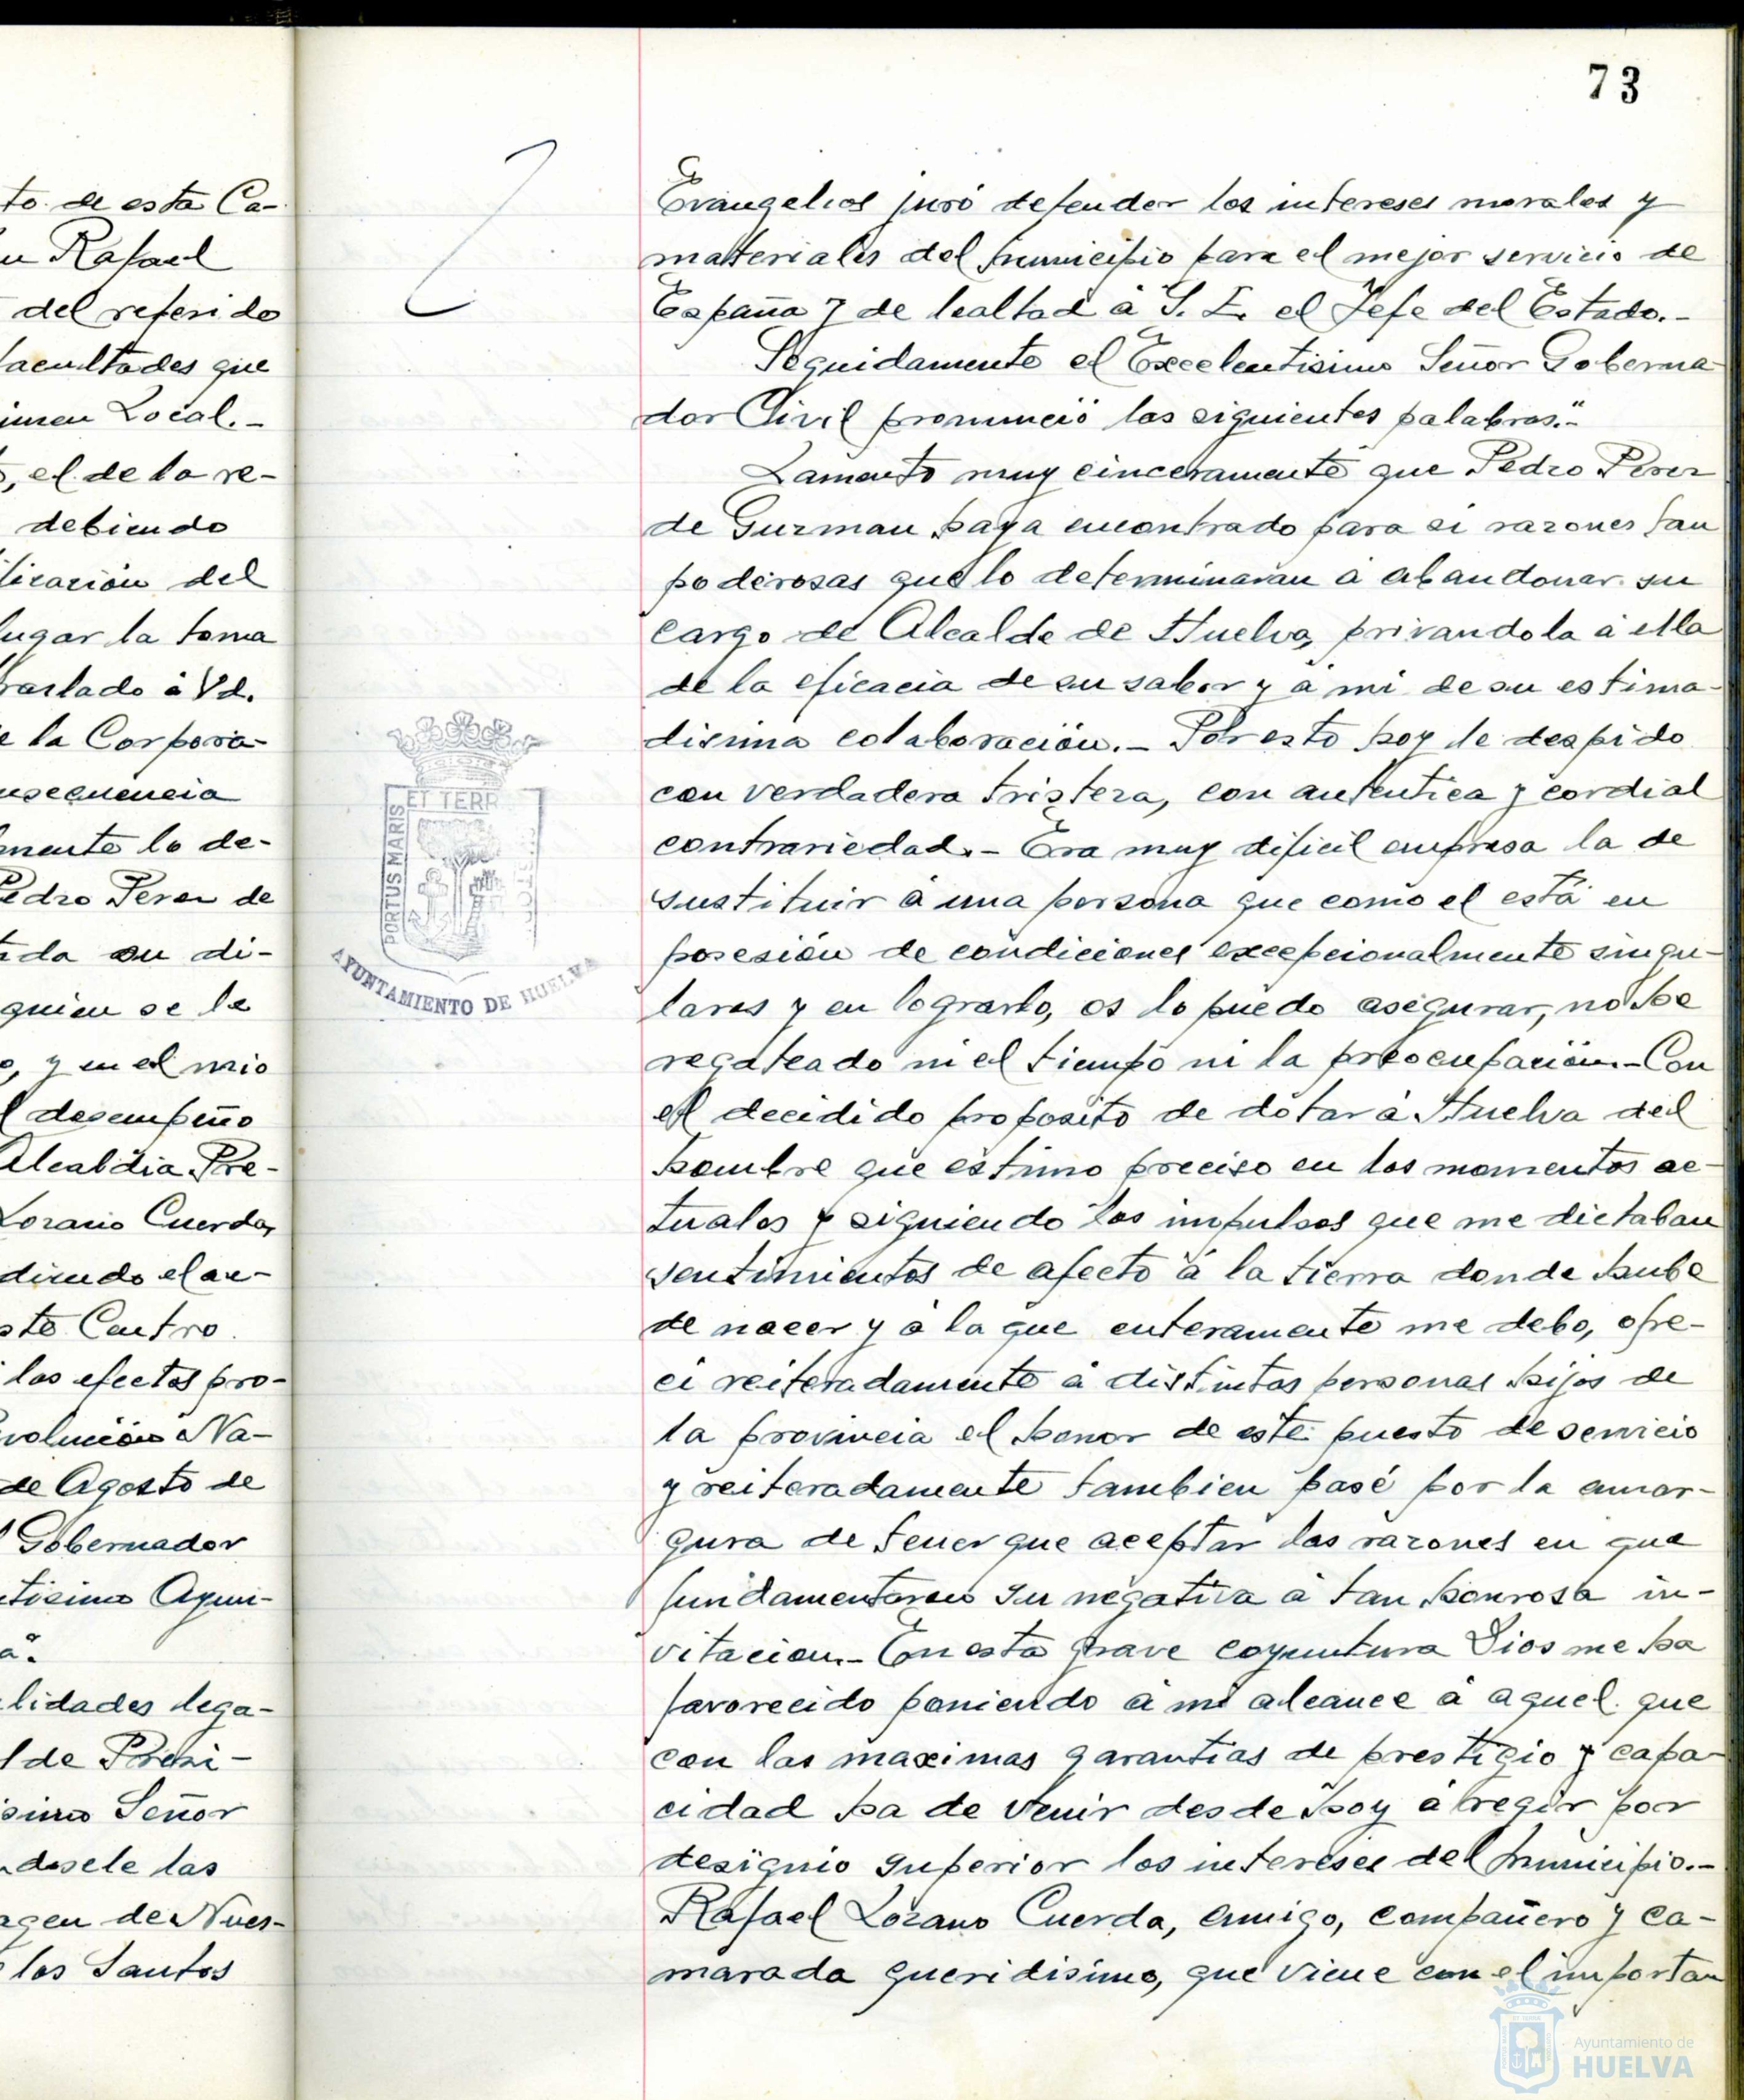 73
to de esta Ca-
Rafael
del referido
facultades que
Local.-
, el de la re-
debiendo
del
lugar la toma
traslado á Vd.
e la Corpora-
nsecuencia
mente lo de-
Pedro Perez de
su di-
quien se le
o, y en el mio
l desempeño
Alcaldia Pre-
Lozano Cuerda,
diendo el ac-
ste Centro
los efectos pro-
volución Na-
de Agosto de
l Gobernador
tisimo Ayun-
a".
lidades lega-
lde Presi-
simo Señor
dosele las
agen de Nues-
los Santos
ET TERR
PORTUS MARIS
AYUNTAMIENTO DE HUELVA
Evangelios juró defender los intereses morales y
materiales del Municipio para el mejor servicio de
España y de lealtad á S. E. el Jefe del Estado.-
Seguidamente el Excelentisimo Señor Goberna-
dor Civil pronunció las siguientes palabras:"
Lamento muy cinceramente que Pedro Perez
de Guzman haya encontrado para si razones tan
poderosas que lo determinaran a abandonar su
cargo de Alcalde de Huelva, privandola á ella
de la eficacia de su saber y á mi de su estima-
disima colaboración.- Por esto hoy le despido
con verdadera tristeza, con autentica y cordial
contrariedad.- Era muy dificil empresa la de
sustituir á una persona que como el está en
posesión de condiciones excepcionalmente singu-
lares y en lograrlo, os lo puedo asegurar, no he
regateado ni el tiempo ni la preocupación.- Con
el decidido proposito de dotar á Huelva del
hombre que estimo preciso en los momentos ac-
tuales y siguiendo los impulsos que me dictaban
sentimientos de afecto á la tierra donde hube
de nacer y á la que enteramente me debo, ofre-
ci reiteradamente á distintas personas hijos de
la provincia el honor de este puesto de servicio
y reiteradamente tambien pasé por la amar-
gura de tener que aceptar las razones en que
fundamentaron su negativa á tan honrosa in-
vitacion.- En esta grave coyuntura Dios me ha
favorecido poniendo á mi alcance á aquel que
con las maximas garantias de prestigio y capa-
cidad ha de venir desde hoy á regir por
designio superior los intereses del Municipio.-
Rafael Lozano Cuerda, amigo, compañero y ca-
marada queridisimo, que viene con el importan
Ayuntamiento de
HUELVA